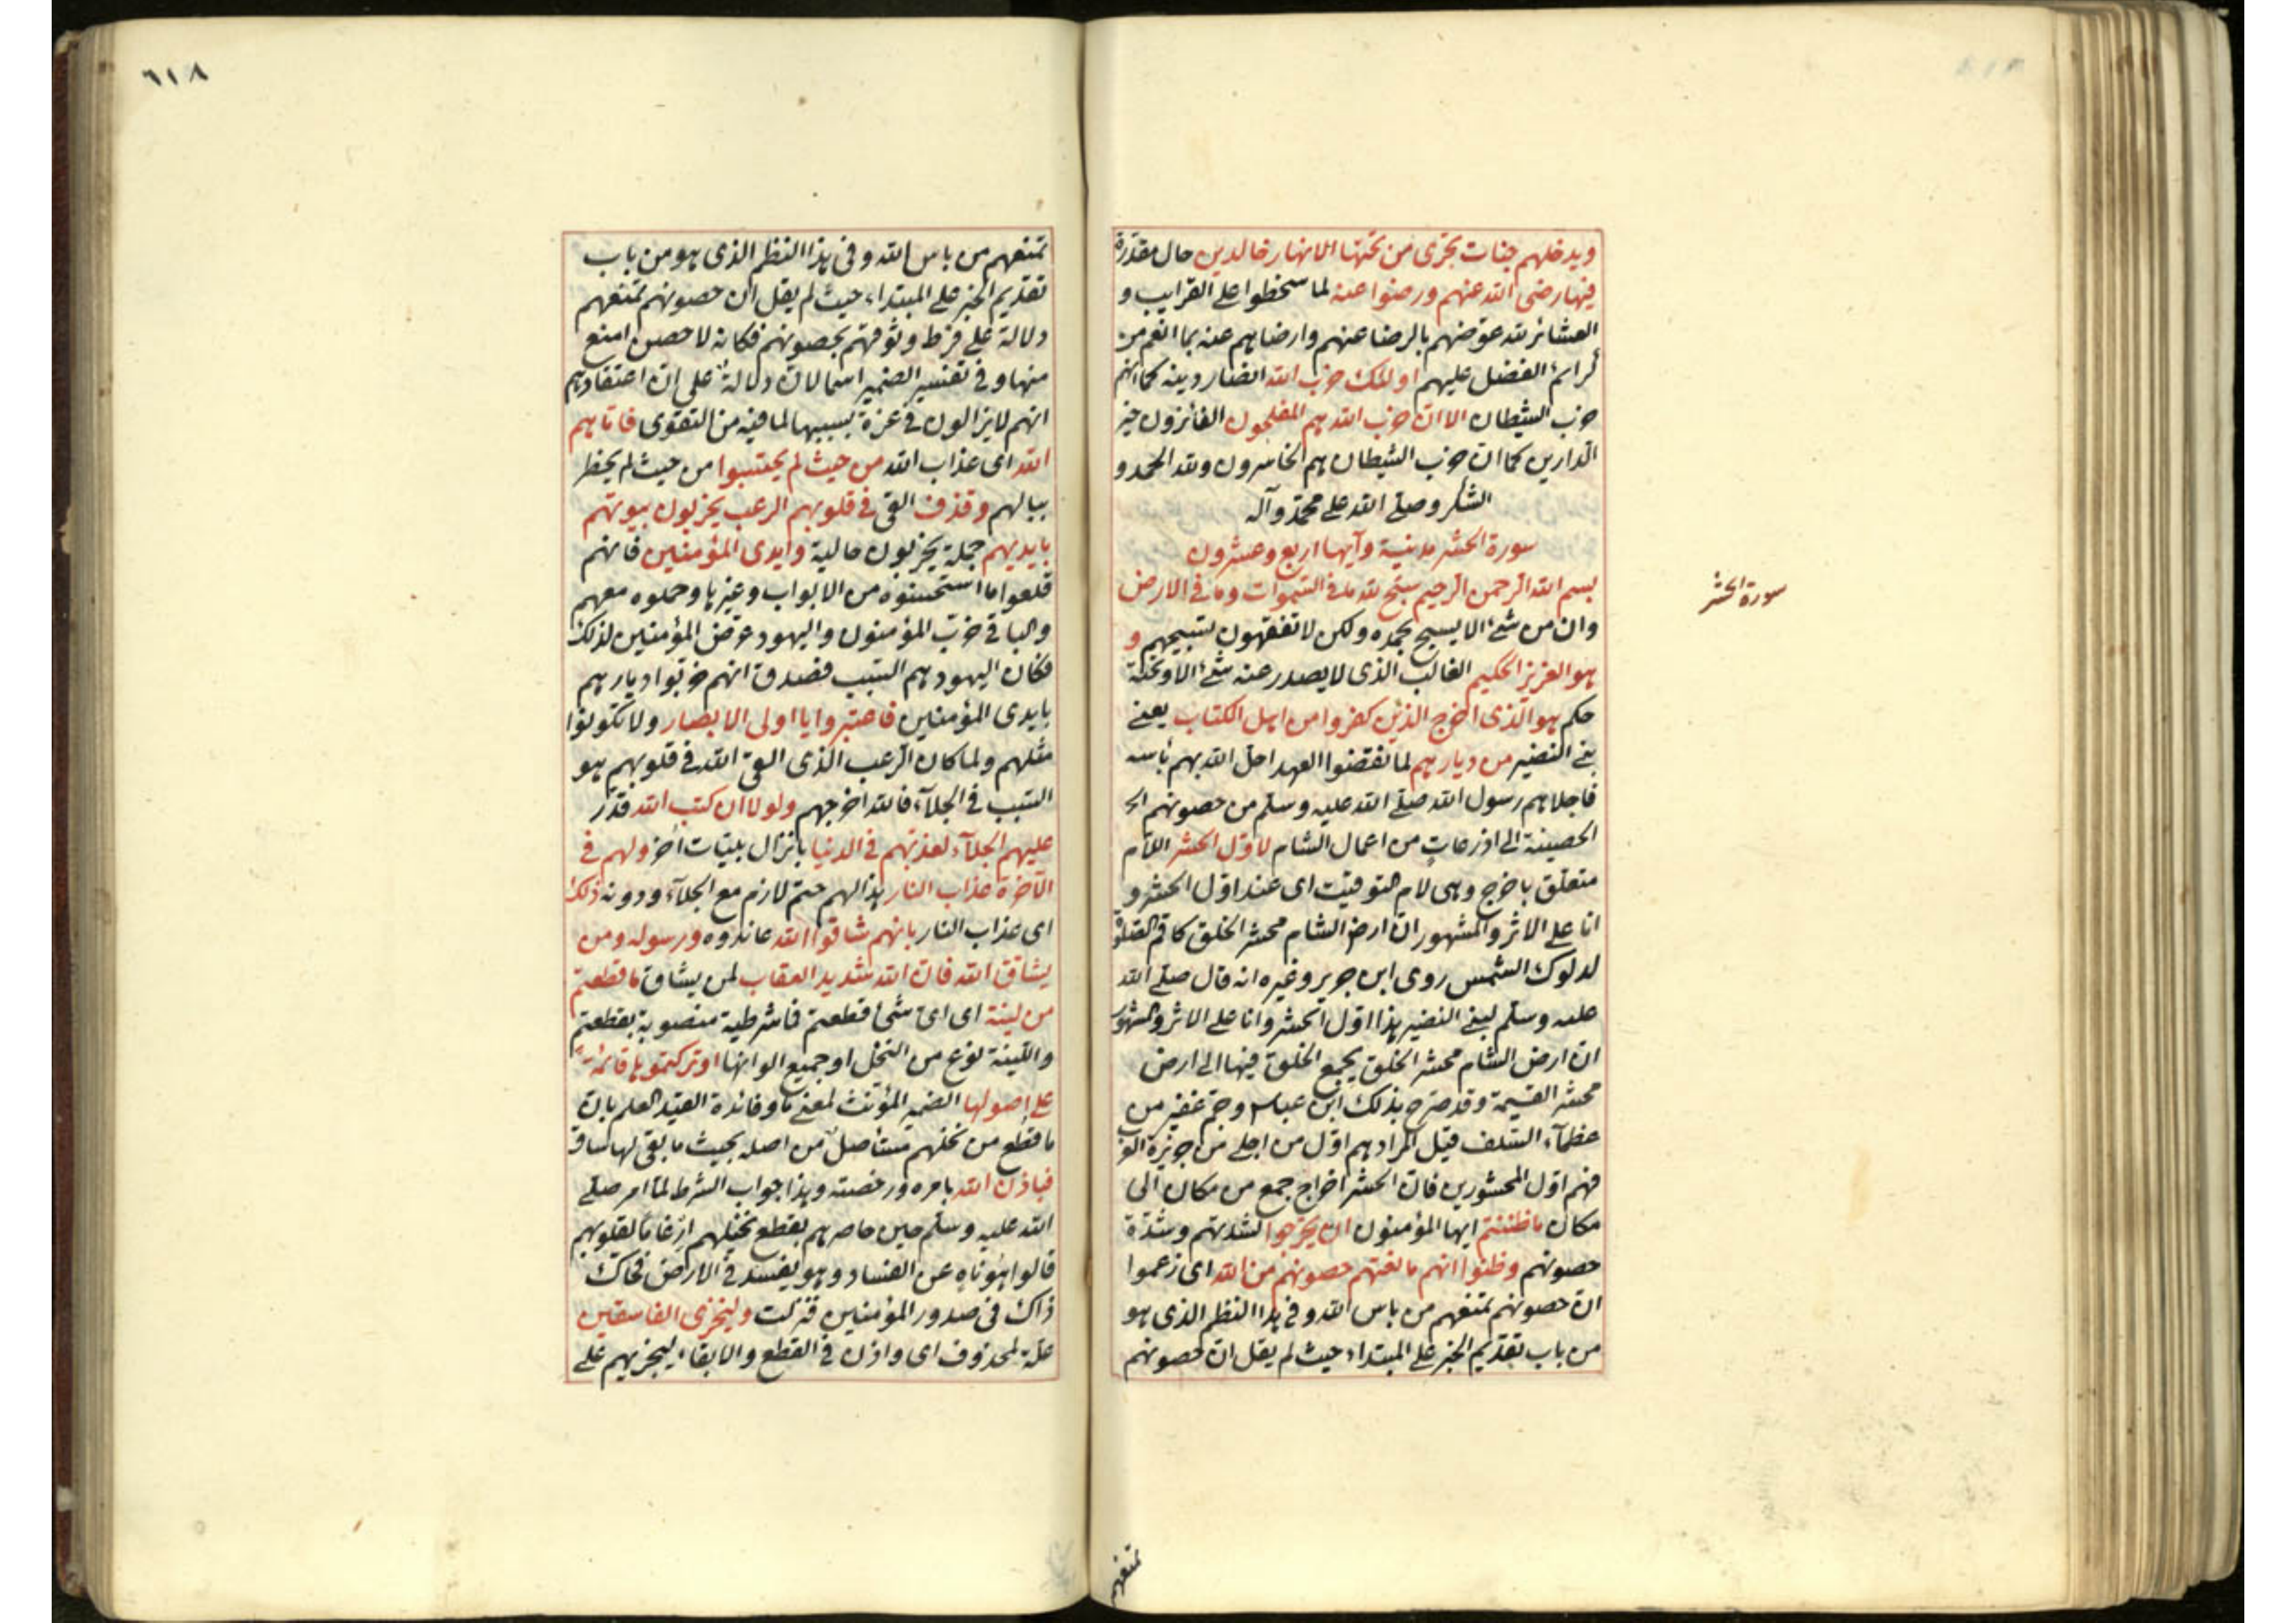 ويدخلهم جنات تجرى من تحتها الانهار خالدين حال مقدرة
فيها رضى الله عنهم ورضوا عنه لما سخطوا على القرايب و
العشائر لله عوّضهم بالرضا عنهم وارضاهم عنه بما انعم من
كرائم الفضل عليهم اولئك حزب الله انصار دينه كما انهم
حزب الشيطان الا ان حزب الله هم المفلحون الفائزون خير
الدارين كما ان حزب الشيطان هم الخاسرون ولله الحمد و
الشكر وصلى الله على محمد وآله
سورة الحشر مدنية وآيها اربع وعشرون
سورة الحشر
بسم الله الرحمن الرحيم سبح لله ما فى السموات وما فى الارض
وان من شئ الا يسبح بحمده ولكن لا تفقهون تسبيحهم و
هو العزيز الحكيم الغالب الذى لا يصدر عنه شئ الا وتحته
حكم هو الذى اخرج الذين كفروا من اهل الكتاب يعنى
بنى النضير من ديارهم لما نقضوا العهد احل الله بهم بأسه
فاجلاهم رسول الله صلى الله عليه وسلم من حصونهم الح
الحصينة الى اذرعات من اعمال الشام لاول الحشر اللام
متعلق باخرج وهى لام التوقيت اى عند اول الحشر و
انا على الاثر والمشهور ان ارض الشام محشر الخلق كاقم الصلوة
لدلوك الشمس روى ابن جرير وغيره انه قال صلى الله
عليه وسلم لبنى النضير هذا اول الحشر وانا على الاثر والمشهور
ان ارض الشام محشر الخلق يجمع الخلق فيها الى ارض
محشر القيمة وقد صرح بذلك ابن عباس وجم غفير من
عظمآء السلف قيل المراد هم اول من اجلى من جزيرة العرب
فهم اول المحشورين فان الحشر اخراج جمع من مكان الى
مكان ما ظننتم ايها المؤمنون ان يخرجوا لشدتهم وشدّة
حصونهم وظنوا انهم مانعتهم حصونهم من الله اى زعموا
ان حصونهم تمنعهم من باس الله وفى هذا النظم الذى هو
من باب تقديم الخبر على المبتداء حيث لم يقل ان حصونهم
تمنعهم
٦١٨
تمنعهم من باس الله وفى هذا النظم الذى هو من باب
تقديم الخبر على المبتداء حيث لم يقل ان حصونهم تمنعهم
دلالة على فرط وثوقهم بحصونهم فكانه لا حصن امنع
منها وفى تفسير الضمير اسما لان دلالة على ان اعتقادهم
انهم لا يزالون فى عزة بسببها لما فيه من التقوى فاتاهم
الله اى عذاب الله من حيث لم يحتسبوا من حيث لم يخطر
ببالهم وقذف القى فى قلوبهم الرعب يخربون بيوتهم
بايديهم جملة يخربون حالية وايدى المؤمنين فانهم
قلعوا ما استحسنوه من الابواب وغيرها وحملوه معهم
والباقى خرّب المؤمنون واليهود عرّض المؤمنين لذلك
فكان اليهود هم السبب فصدق انهم خرّبوا ديارهم
بايدى المؤمنين فاعتبروا يا اولى الابصار ولا تكونوا
مثلهم ولما كان الرعب الذى القى الله فى قلوبهم هو
السبب فى الجلآء فالله اخرجهم ولولا ان كتب الله قدّر
عليهم الجلآء لعذبهم فى الدنيا بانزال بليّات اخر ولهم فى
الآخرة عذاب النار هذا لهم حتم لازم مع الجلآء ودونه ذلك
اى عذاب النار بانهم شاقوا الله عاندوه ورسوله ومن
يشاقق الله فان الله شديد العقاب لمن يشاق ما قطعتم
من لينة اى اىّ شئ قطعتم فما شرطية منصوبة بقطعتم
واللينة نوع من النخل او جميع الوانها او تركتموها قائمة
على اصولها الضمير المؤنث لمعنى ما وفائدة القيد العلم بان
ما قطع من نخلهم مستأصل من اصله بحيث ما بقى لها ساق
فباذن الله بامره ورخصته وهذا جواب الشرط لما امر صلى
الله عليه وسلم حين حاصرهم بقطع نخيلهم ارغاما لقلوبهم
قالوا هو ناهٍ عن الفساد وهو يفسد فى الارض فحاك
ذاك فى صدور المؤمنين فنزلت وليخزى الفاسقين
علة لمحذوف اى واذن فى القطع والابقاء ليخزيهم على